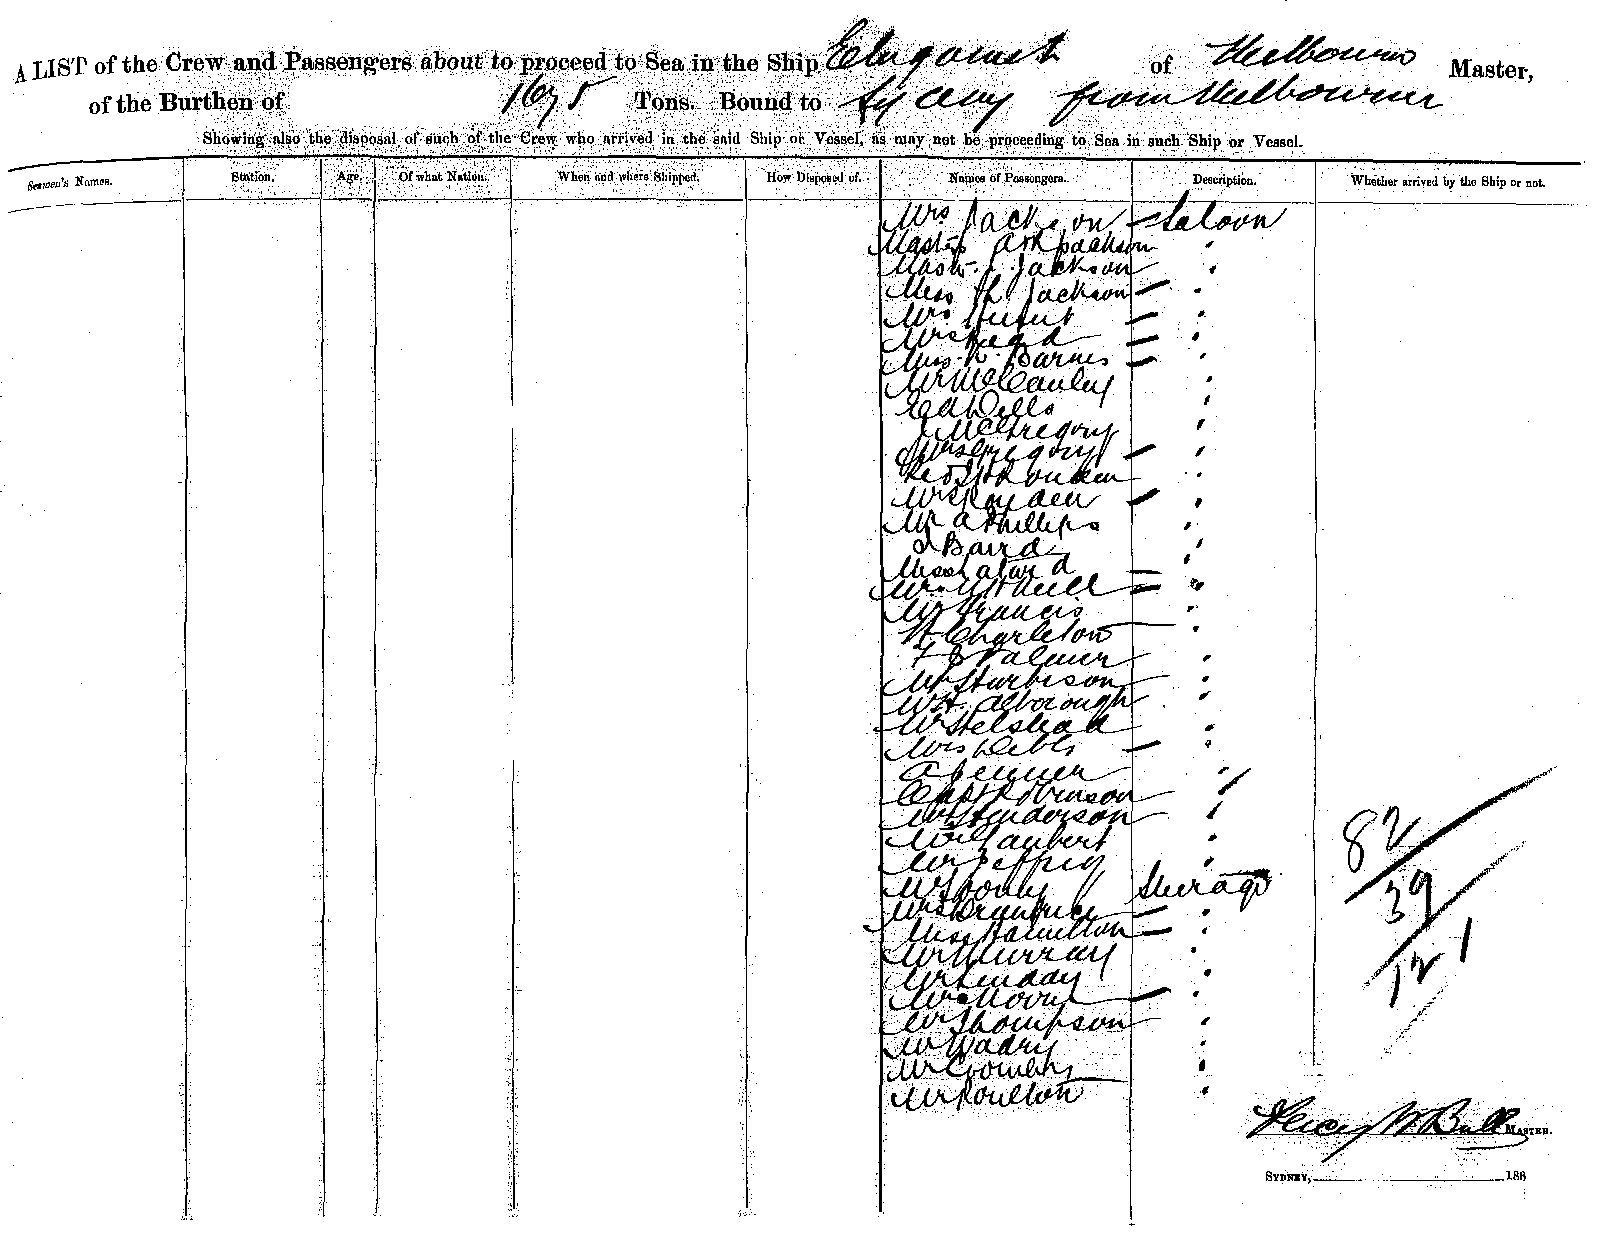 A LIST of the Crew and Passengers about to proceed to Sea in the Ship Elingamite of Melbourne Master,
of the Burthen of 1675 Tons. Bound to Sydney from Melbourne
Showing also the disposal of such of the Crew who arrived in the said Ship or Vessel, as may not be proceeding to Sea in such Ship or Vessel.
Seamen's Names. Station. Age. Of what Nation. When and where Shipped. How Disposed of. Names of Passengers. Description. Whether arrived by the Ship or not.
Mrs Jackson — Saloon
Master Jackson "
Mastr Jackson "
Miss Jackson — "
Mrs — "
Mrs — "
Miss Barnes — "
Mr McCauley "
Wells "
McGregory "
Mrs Gregory — "
"
Mrs Royden — "
Mr A Phillips "
Baird "
Miss —
Mrs — "
Mr Francis "
H Charleton "
F Palmer "
Mr "
W H Alborough "
Mr Helshead "
Mrs — "
A Jenner "
Capt Robinson "
Mr Henderson "
Mr Laubert "
Mr Jeffrey "
82
Mr Steerage
39
Mrs — "
Miss Hamilton — "
121
Mr Murray "
Mr Linday "
Mrs — "
Mr Thompson "
Mr Wadry "
Mr "
Mr Poulton "
Percy W Bull MASTER.
SYDNEY, 188